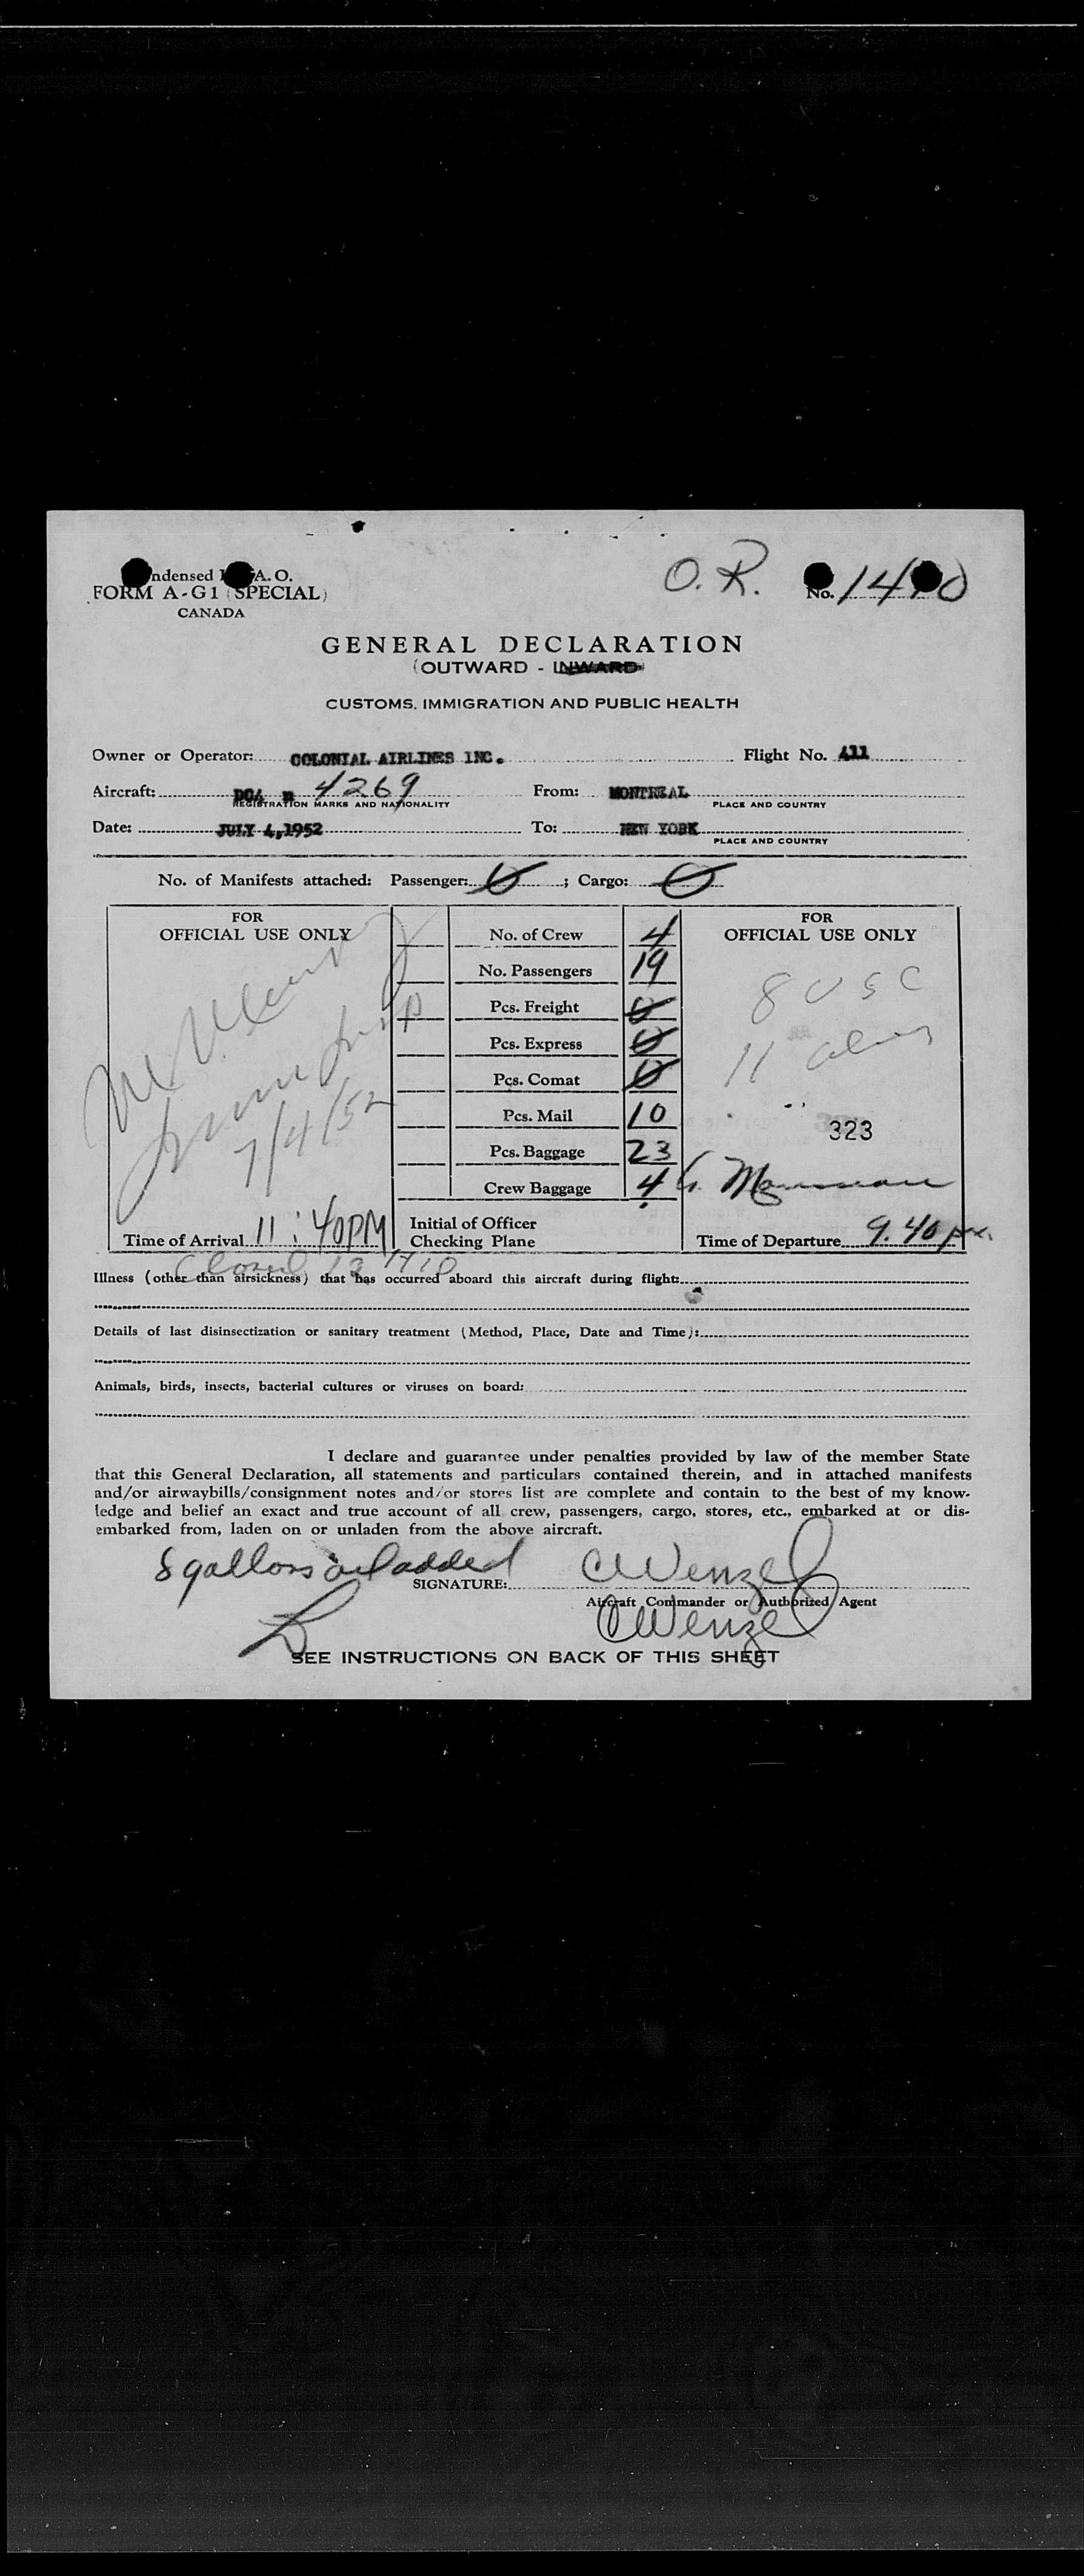 ndensed A.O.
FORM A-G1 (SPECIAL)
CANADA
O.R.
No.
GENERAL DECLARATION
(OUTWARD - INWARD)
CUSTOMS, IMMIGRATION AND PUBLIC HEALTH
Owner or Operator: COLONIAL AIRLINES INC. Flight No. 411
Aircraft: DC4 N 4269 From: MONTREAL
REGISTRATION MARKS AND NATIONALITY PLACE AND COUNTRY
Date: JULY 4,1952 To: NEW YORK
PLACE AND COUNTRY
No. of Manifests attached: Passenger: 0 ; Cargo: 0
FOR
OFFICIAL USE ONLY
7/4/52
Time of Arrival 11:40PM
No. of Crew 4
No. Passengers 19
Pcs. Freight 0
Pcs. Express 0
Pcs. Comat 0
Pcs. Mail 10
Pcs. Baggage 23
Crew Baggage 4
Initial of Officer
Checking Plane
FOR
OFFICIAL USE ONLY
8 USC
11 aliens
323
Time of Departure 9.40 pm.
Closed
Illness (other than airsickness) that has occurred aboard this aircraft during flight:
Details of last disinsectization or sanitary treatment (Method, Place, Date and Time):
Animals, birds, insects, bacterial cultures or viruses on board:
I declare and guarantee under penalties provided by law of the member State
that this General Declaration, all statements and particulars contained therein, and in attached manifests
and/or airwaybills/consignment notes and/or stores list are complete and contain to the best of my know-
ledge and belief an exact and true account of all crew, passengers, cargo, stores, etc., embarked at or dis-
embarked from, laden on or unladen from the above aircraft.
8 gallons oil added
SIGNATURE: CWenzel
Aircraft Commander or Authorized Agent
CWenzel
SEE INSTRUCTIONS ON BACK OF THIS SHEET